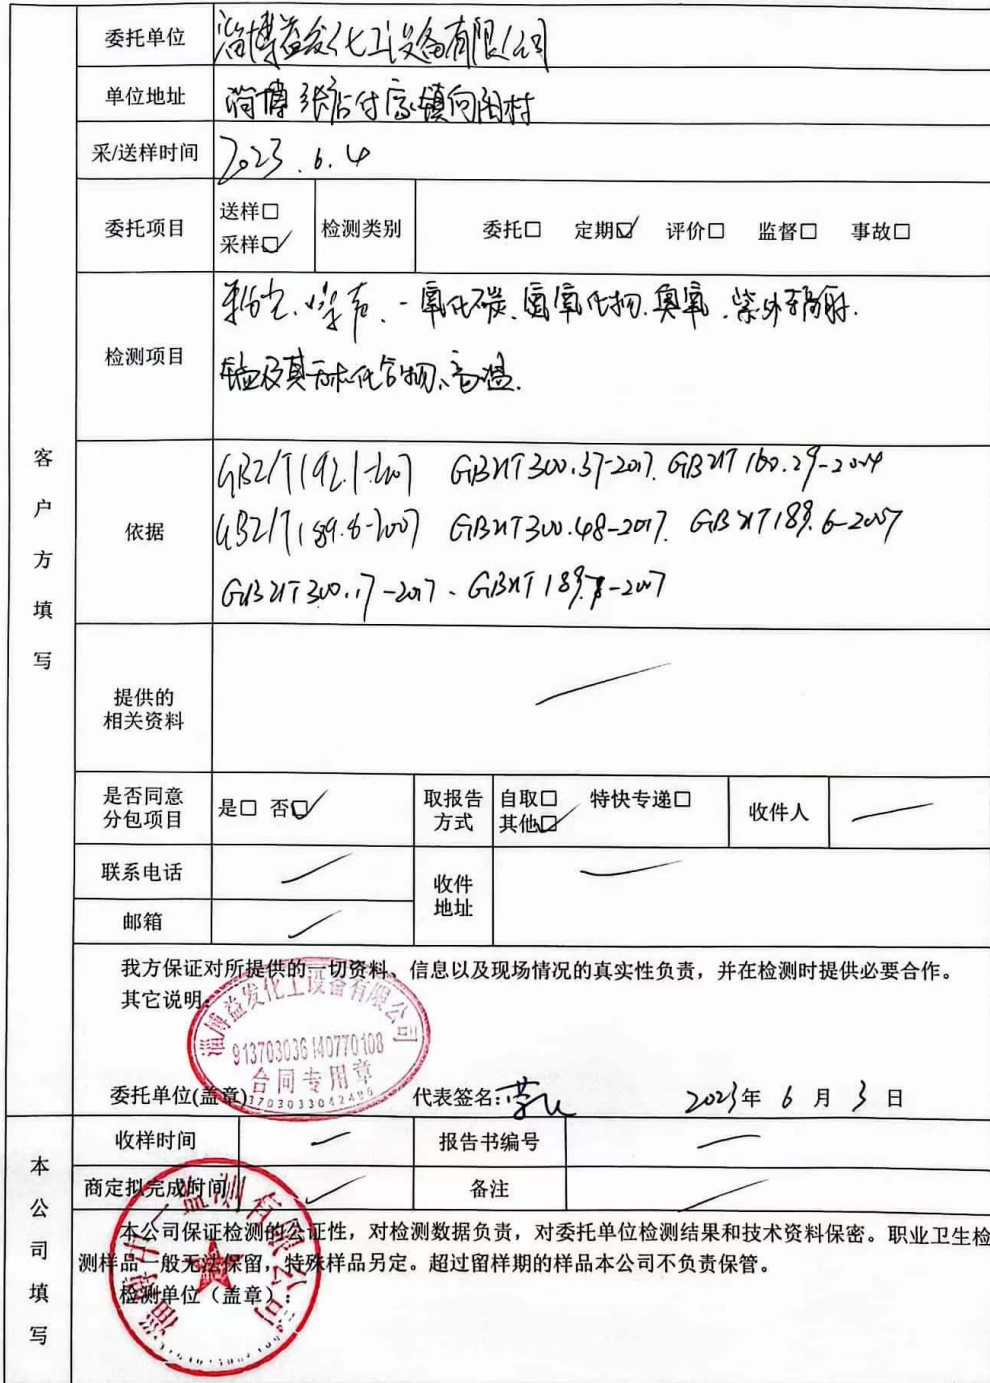 委托单位 淄博益发化工设备有限公司
单位地址 淄博张店付家镇向阳村
采/送样时间 2023.6.4
委托项目 送样□ 采样☑ 检测类别 委托□ 定期☑ 评价□ 监督□ 事故□
检测项目
粉尘、噪声、一氧化碳、氮氧化物、臭氧、紫外辐射、
锰及其无机化合物、高温.
客户方填写
依据
GBZ/T192.1-2007 GBZ/T300.37-2017. GBZ/T160.29-2004
GBZ/T189.8-2007 GBZ/T300.48-2017. GBZ/T189.6-2007
GBZ/T300.17-2017、GBZ/T189.7-2007
提供的
相关资料
是否同意
分包项目
是□ 否☑
取报告
方式
自取□ 特快专递□
其他☑
收件人
联系电话
收件
地址
邮箱
我方保证对所提供的一切资料、信息以及现场情况的真实性负责，并在检测时提供必要合作。
其它说明：
淄博益发化工设备有限公司
913703036140770108
合同专用章
委托单位(盖章) 代表签名: 2023年 6 月 3 日
收样时间 报告书编号
商定拟完成时间 备注
本公司填写
本公司保证检测的公证性，对检测数据负责，对委托单位检测结果和技术资料保密。职业卫生检
测样品一般无法保留，特殊样品另定。超过留样期的样品本公司不负责保管。
检测单位（盖章）：